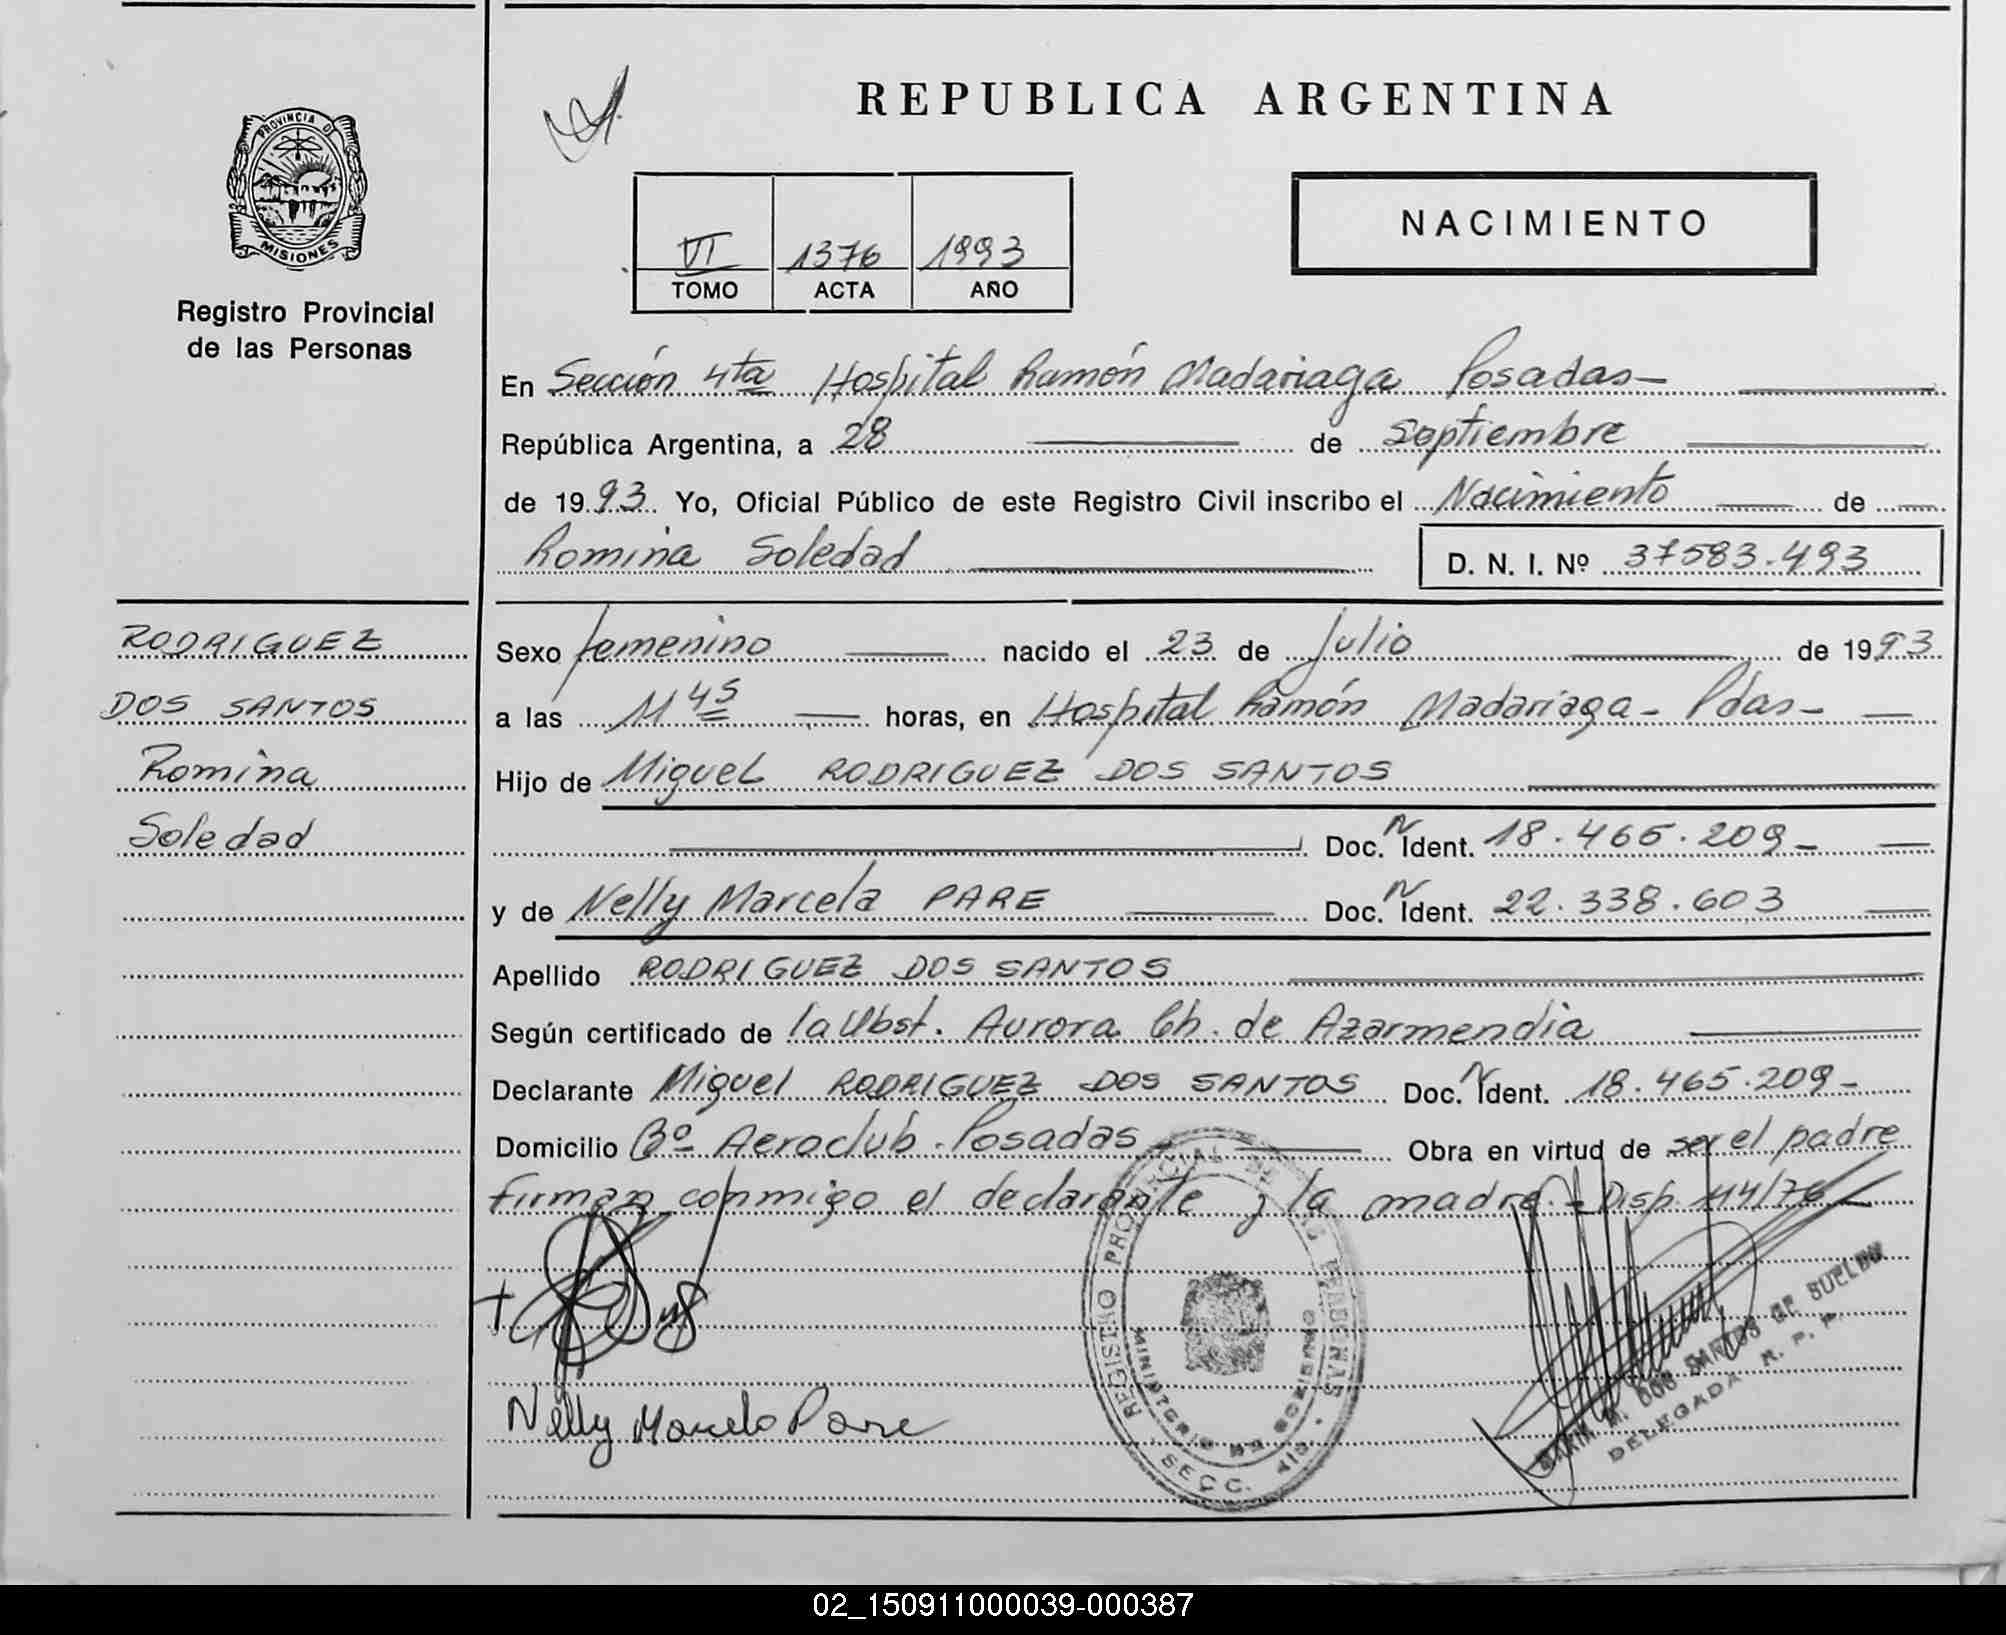 REPUBLICA ARGENTINA
PROVINCIA DE
MISIONES
Registro Provincial
de las Personas
NACIMIENTO
VI 1376 1993
TOMO ACTA AÑO
En Sección 4ta Hospital Ramón Madariaga Posadas-
República Argentina, a 28 de Septiembre
de 1993. Yo, Oficial Público de este Registro Civil inscribo el Nacimiento de
Romina Soledad D. N. I. Nº 37583.493
RODRIGUEZ
DOS SANTOS
Romina
Soledad
Sexo femenino nacido el 23 de Julio de 1993.
a las 11 45 horas, en Hospital Ramón Madariaga - Pdas-
Hijo de Miguel RODRIGUEZ DOS SANTOS
Doc. N Ident. 18.465.209-
y de Nelly Marcela PARE Doc. N Ident. 22.338.603
Apellido RODRIGUEZ DOS SANTOS
Según certificado de la Obst. Aurora Ch. de Azarmendia
Declarante Miguel RODRIGUEZ DOS SANTOS Doc. N Ident. 18.465.209-
Domicilio Bº Aeroclub. Posadas Obra en virtud de ser el padre
firman conmigo el declarante y la madre.- Disp.
Nelly Marcela Pare
REGISTRO PROVINCIAL DE LAS PERSONAS
MINISTERIO DE GOBIERNO
SECC. 4ta
M. DOS SANTOS DE SUELDO
DELEGADA R. P. P.
02_150911000039-000387